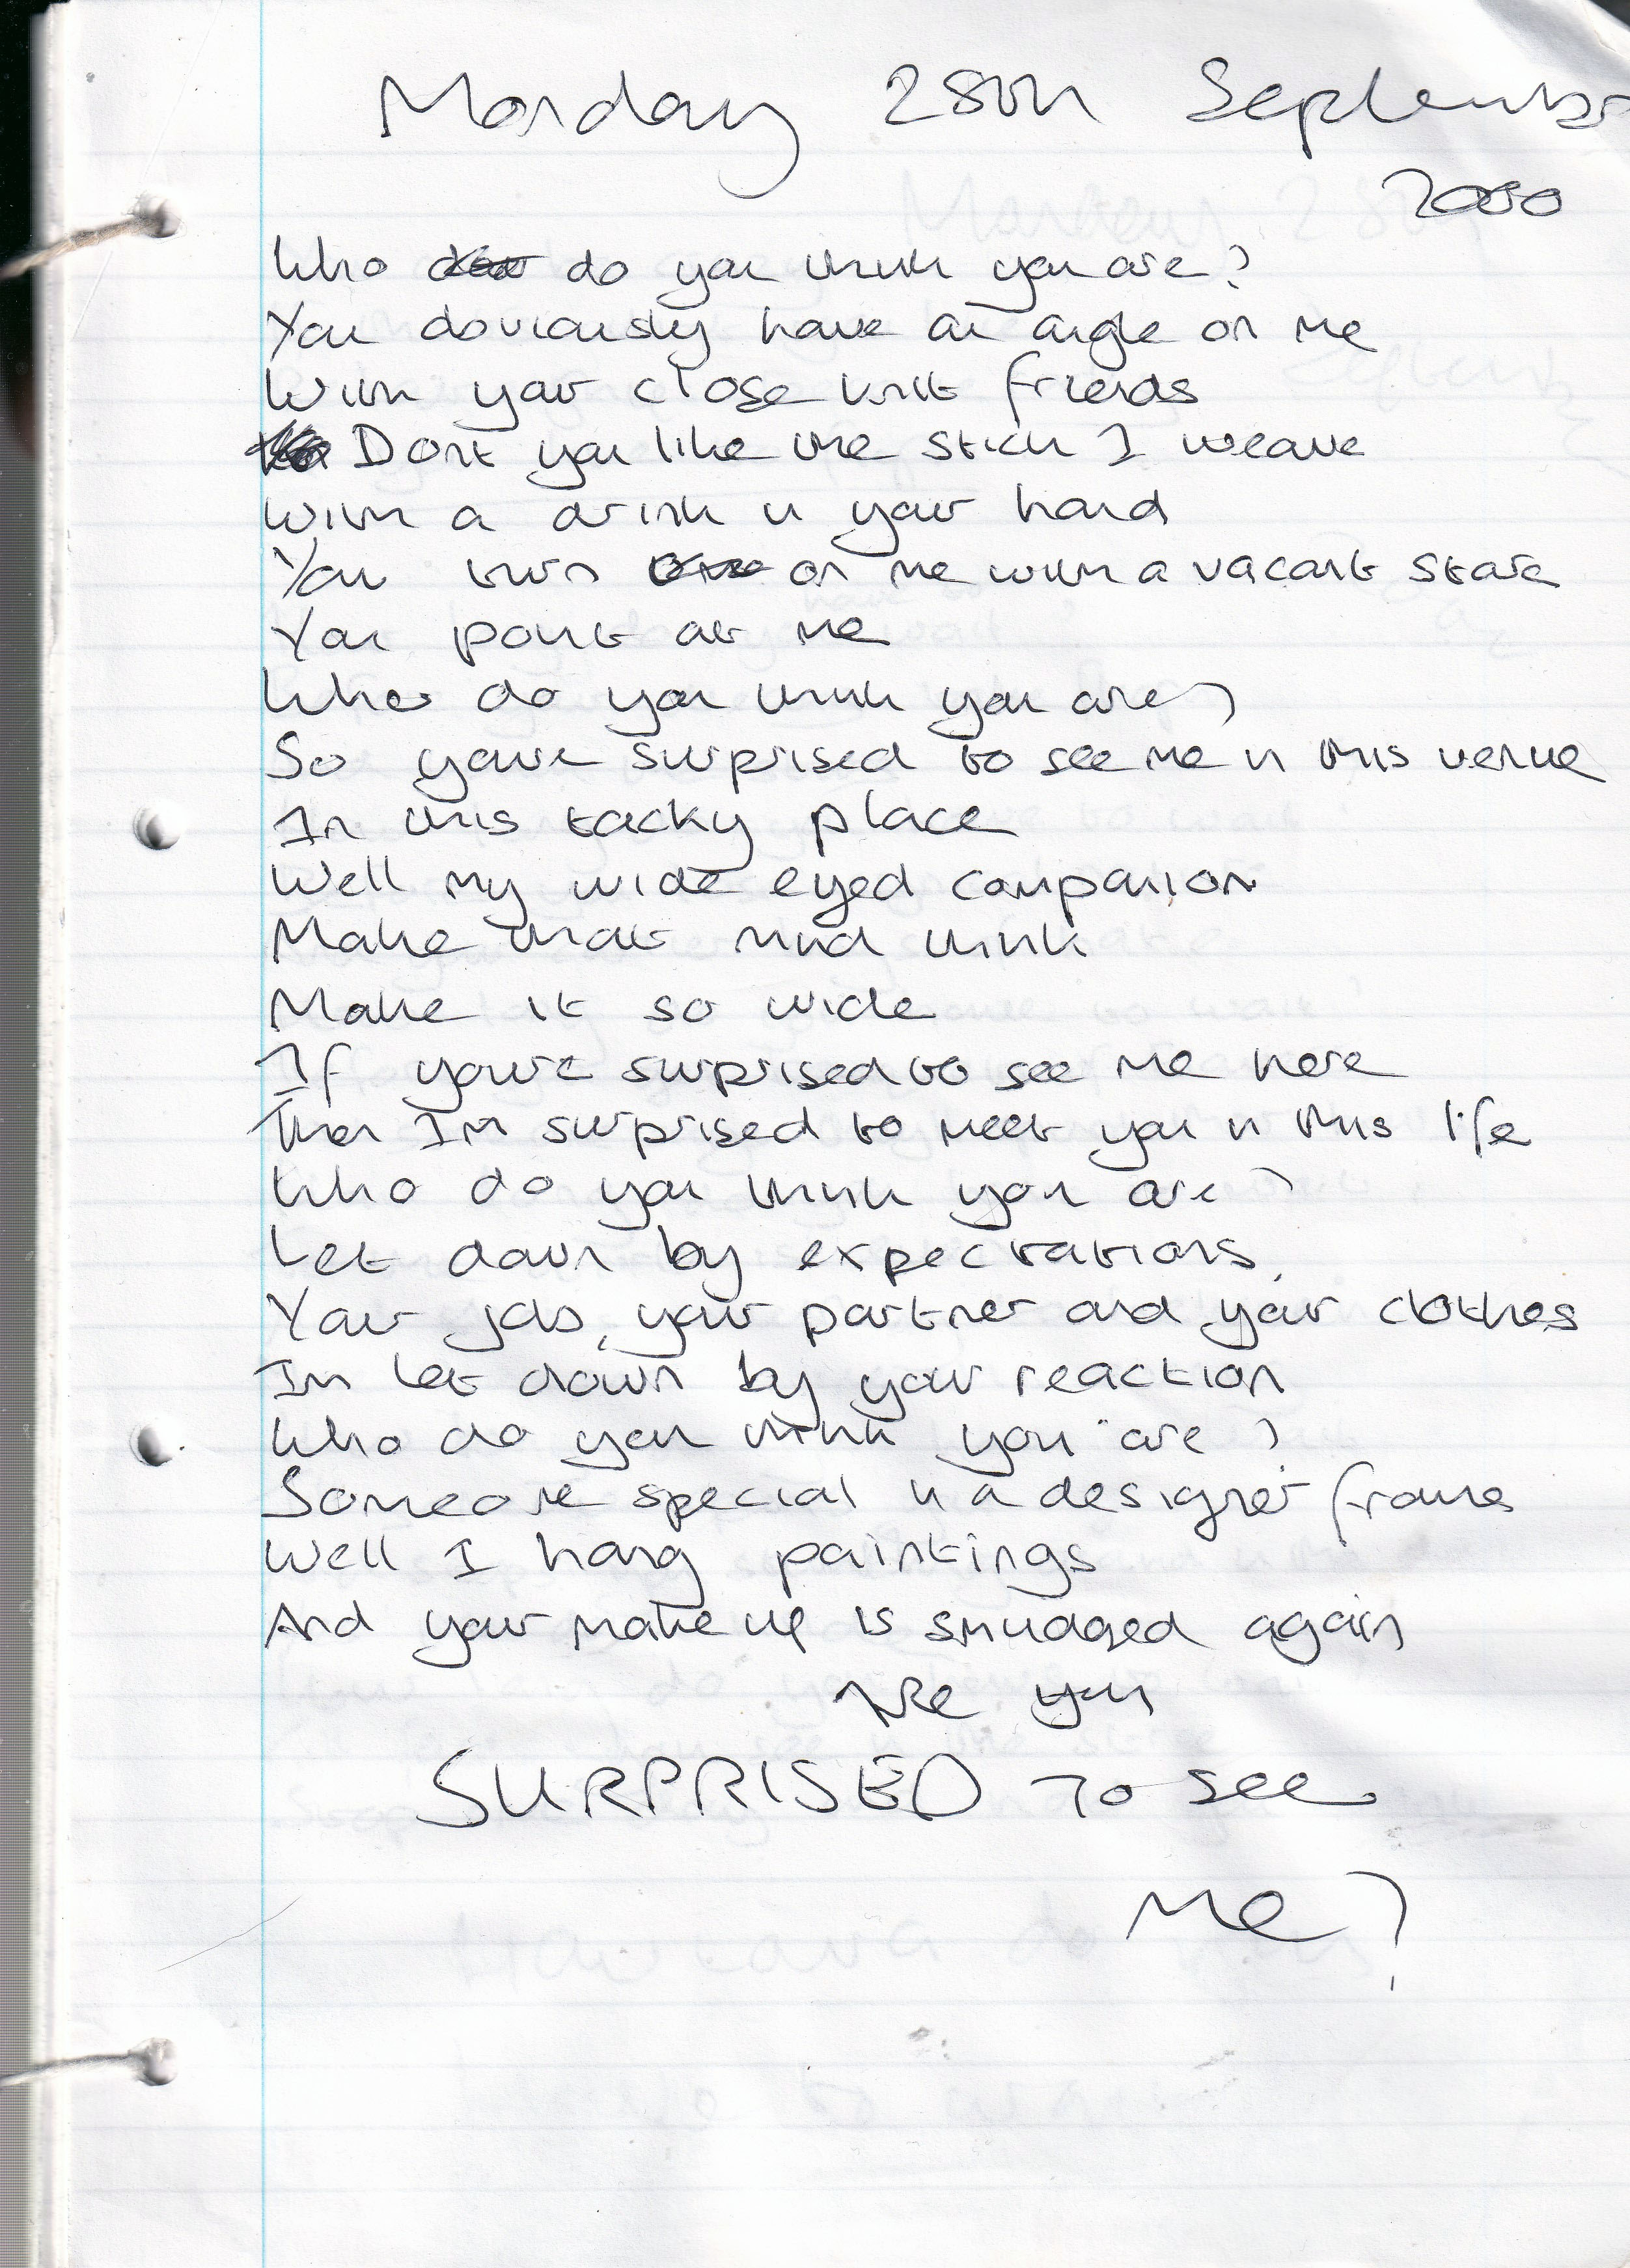 Monday 28th September
2000
Who do you think you are?
You obviously have an angle on me
With your close knit friends
Dont you like the stich I weave
With a drink in your hand
You turn on me with a vacant stare
You point at me
Who do you think you are?
So youre surprised to see me in this venue
In this tacky place
Well my wide eyed companion
Make that mind think
Make it so wide
If youre surprised to see me here
Then Im surprised to meet you in this life
Who do you think you are?
Let down by expectations,
Your job, your partner and your clothes
Im let down by your reaction
Who do you think you are?
Someone special in a designer frame
Well I hang paintings
And your make up is smudged again
Are you
SURPRISED To see
Me?